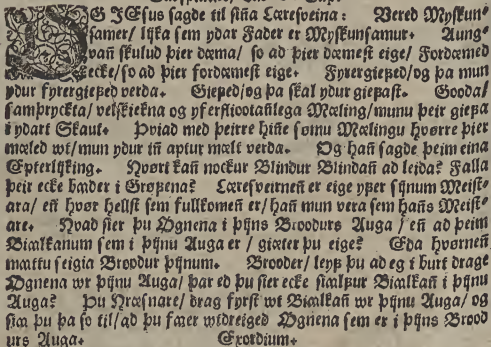 OG JEsus sagde til sijna Læresveina: Vered Myskun-
samer/ lijka sem ydar Fader er Myskunsamur. Aung-
van skulud þier dæma/ so ad þier dæmest eige/ Fordæmed
ecke/so ad þier fordæmest eige. Fyrergiefed/og þa mun
ydur fyrergiefed verda. Giefed/og þa skal ydur giefast. Gooda/
samþryckta/ velskiekna og yferfliootanlega Mæling/munu þeir giefa
i ydart Skaut. Þviad med þeirre hinne sømu Mælingu hvørre þier
mæled wt/mun ydur in aptur mælt verda. Og hann sagde þeim eina
Epterlijking. Hvort kann nockur Blindur Blindann ad leida? Falla
þeir ecke bader i Grøfena? Læresveirnen er eige yfer sijnum Meist-
ara/ en hvør hellst sem fullkomen er/ hann mun vera sem hans Meist-
are. Hvad sier þu Ognena i þijns Broodurs Auga/ en ad þeim
Biælkanum sem i þijnu Auga er/ giæter þu eige? Eda hvørnen
mattu seigia Broodur þijnum. Brooder/ leyf þu ad eg i burt drage
Ognena wr þijnu Auga/ þar ed þu sier ecke siælfur Biælkan i þijnu
Auga? Þu Hræsnare/ drag fyrst wt Biælkan wr þijnu Auga/ og
siæ þu þa so til/ad þu fæer wtdreiged Ognena sem er i þijns Brood
urs Auga. Exordium.